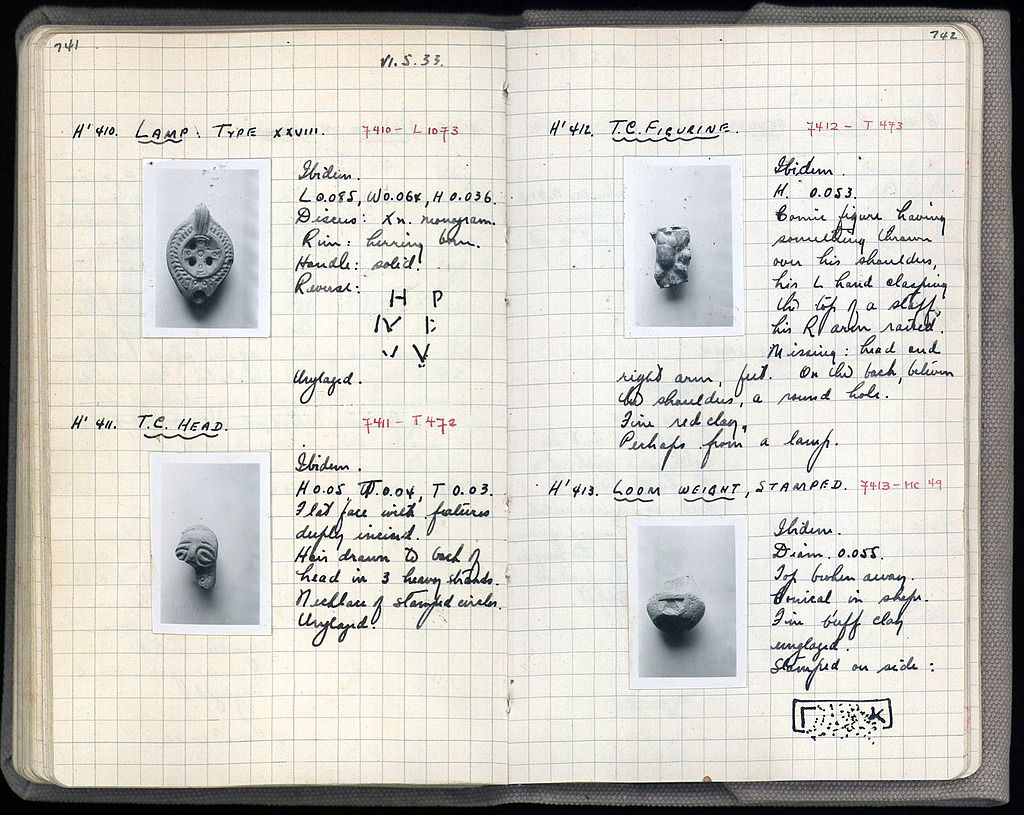 741
VI.S.33.
H' 410. LAMP: TYPE XXVIII. 7410 - L 1073
Ibidem.
L 0.085, W 0.064, H 0.036.
Discus: Xn. monogram.
Rim: herring bone.
Handle: solid.
Reverse:
H P
Unglazed.
H' 411. T.C. HEAD. 7411 - T 472
Ibidem.
H 0.05, W. 0.04, T 0.03.
Flat face with features
deeply incised.
Hair drawn to back of
head in 3 heavy strands.
Necklace of stamped circles.
Unglazed.
742
H' 412. T.C. FIGURINE. 7412 - T 473
Ibidem.
H. 0.053.
Comic figure having
something thrown
over his shoulders,
his L hand clasping
the top of a staff,
his R arm raised.
Missing: head and
right arm, feet. On the back, between
the shoulders, a round hole.
Fine red clay.
Perhaps from a lamp.
H' 413. LOOM WEIGHT, STAMPED. 7413 - MC 49
Ibidem.
Diam. 0.055.
Top broken away.
Conical in shape.
Fine buff clay
unglazed.
Stamped on side:
Γ K